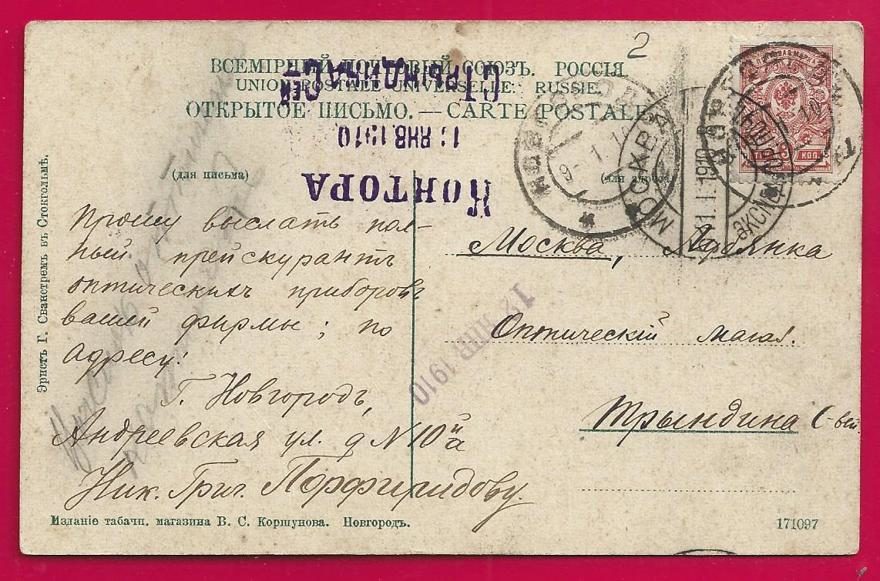 2
ВСЕМІРНЫЙ ПОЧТОВЫЙ СОЮЗЪ. РОССІЯ.
UNION POSTALE UNIVERSELLE. RUSSIE.
ОТКРЫТОЕ ПИСЬМО. — CARTE POSTALE
(для письма)
(для адреса)
КОНТОРА
11 ЯНВ 1910
12 ЯНВ 1910
МОСКВА
11.1.1910
ЭКСПЕД.
КОП.
Прошу выслать пол-
ный прейскурантъ
оптическихъ приборовъ
вашей фирмы; по
адресу:
Г. Новгородъ,
Андреевская ул. д N 10й
Ник. Григ. Порфиридову.
Москва, Лубянка
Оптическій магаз.
Трындина С-вей
Эрнстъ Г. Сванстремъ въ Стокгольмѣ.
Изданіе табачн. магазина В. С. Коршунова. Новгородъ.
171097